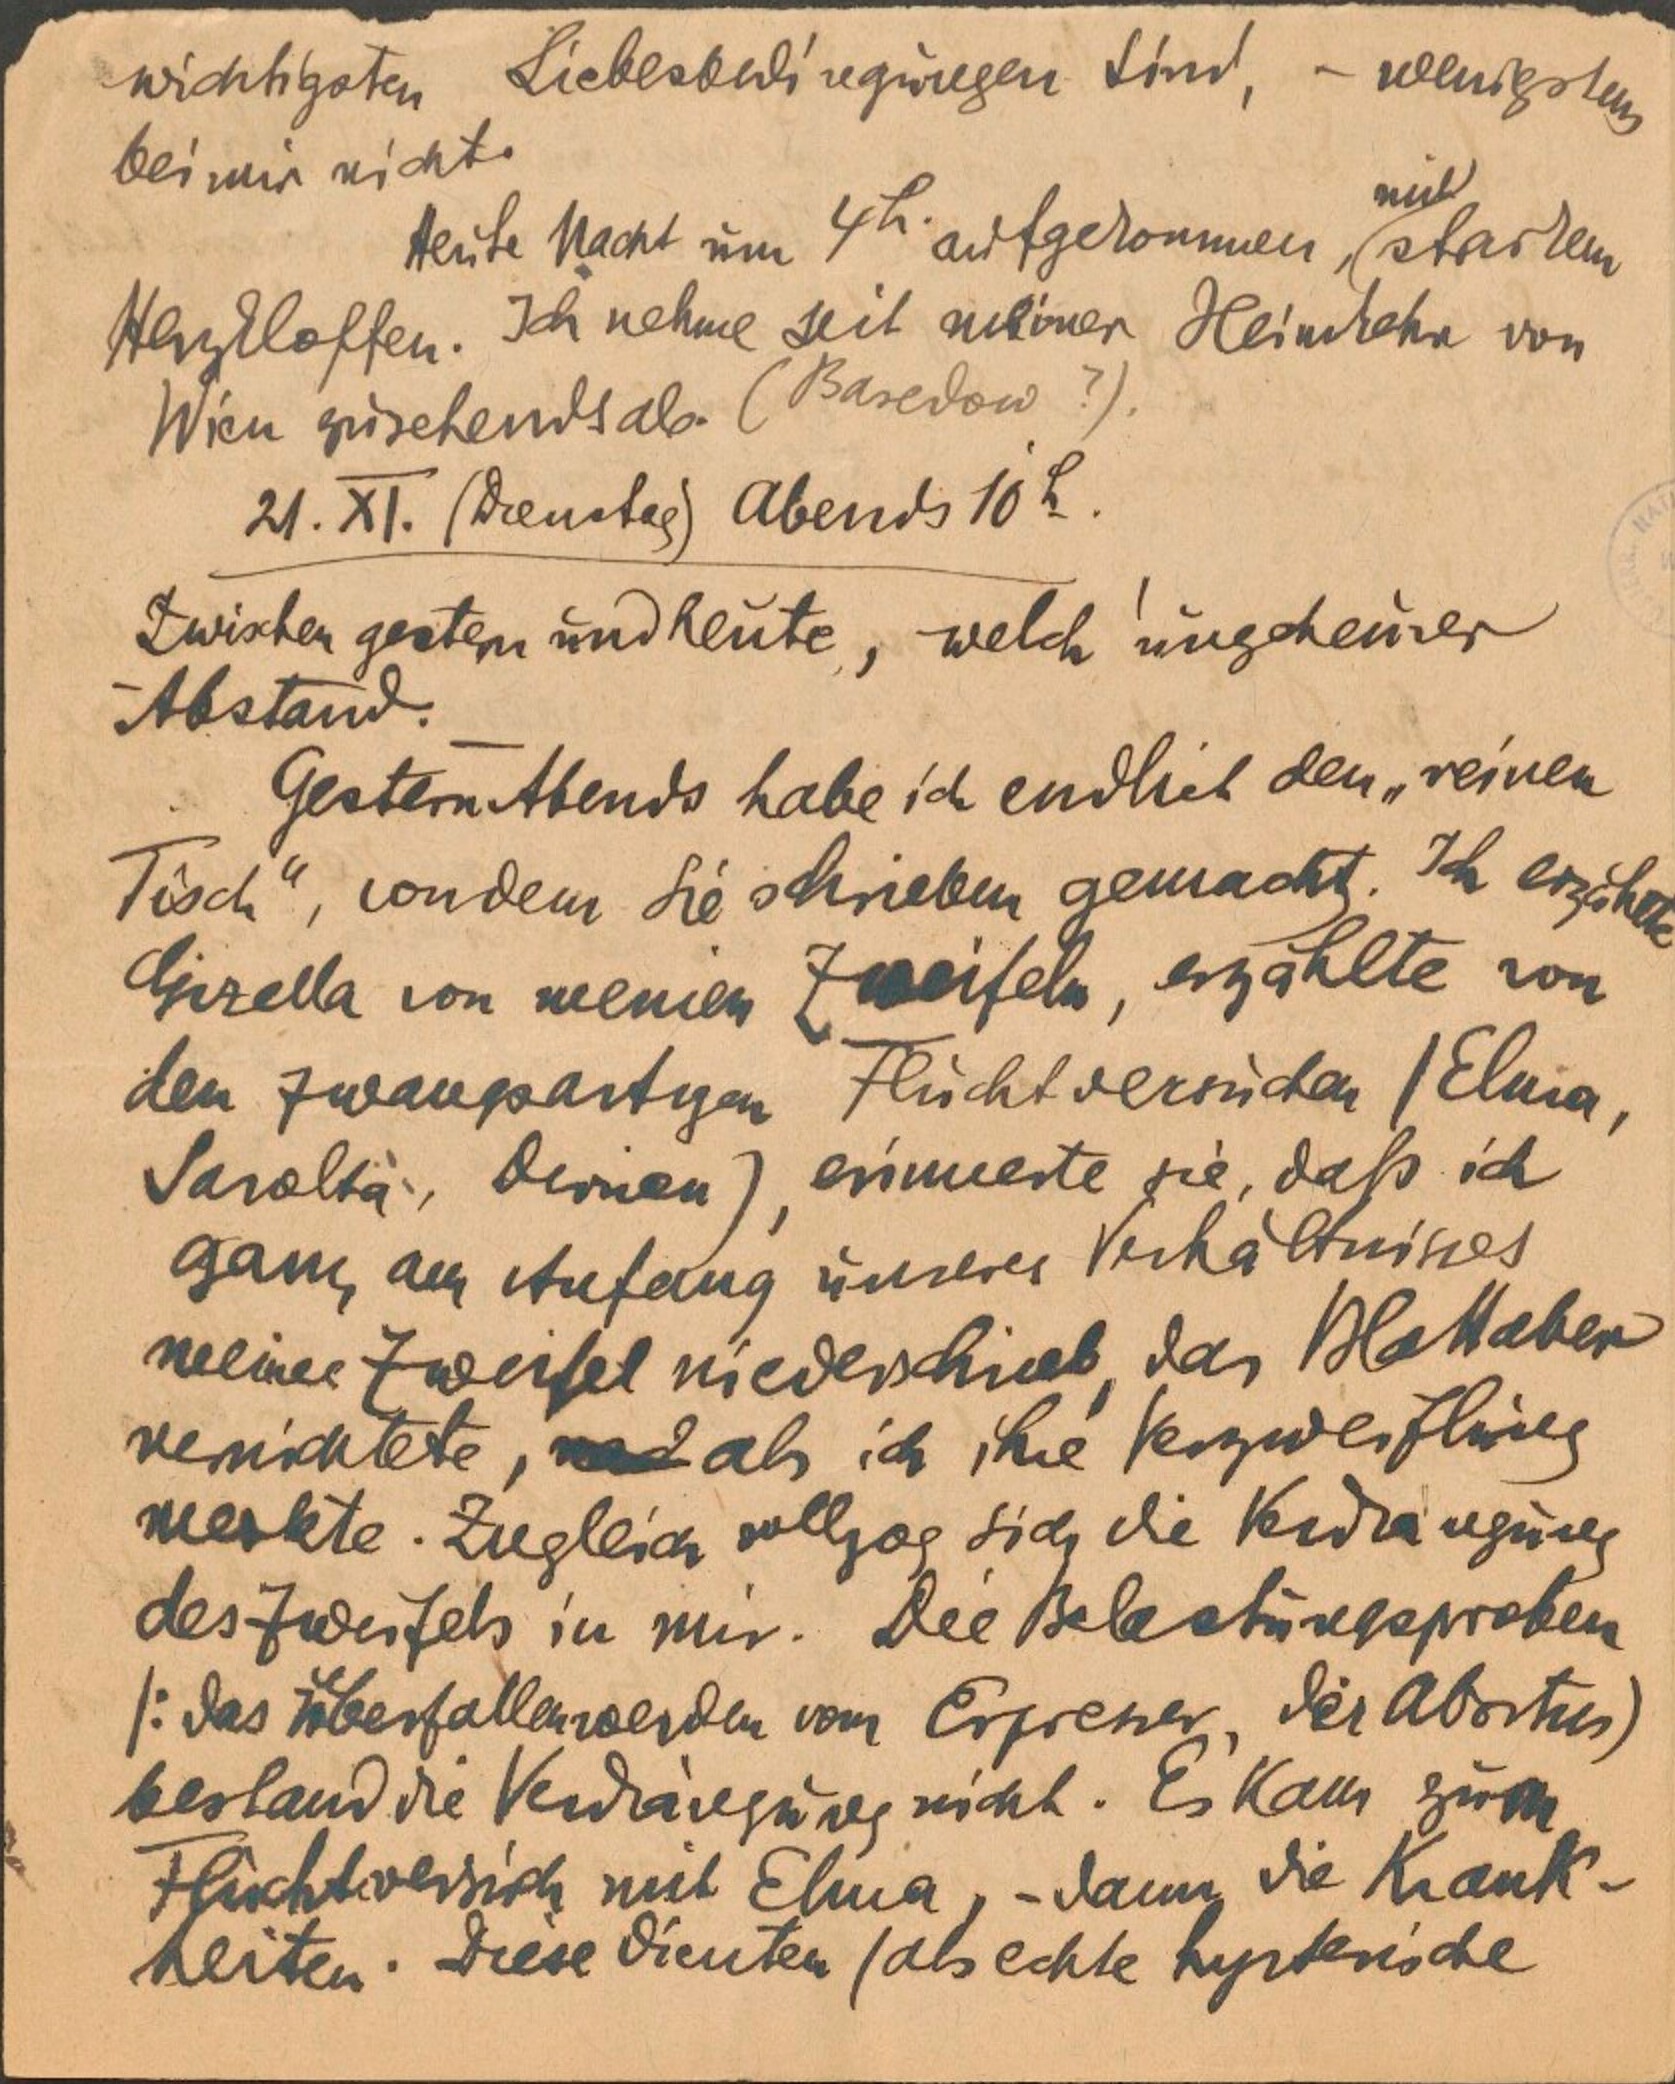 wichtigsten Liebesbedingungen sind, – wenigstens
bei mir nicht.
Heute Nacht um 4h. aufgekommen, mit starkem
Herzklopfen. Ich nehme seit meiner Heimkehr von
Wien zusehends ab. (Basedow ?).
21. XI. (Dienstag) Abends 10 h.
Zwischen gestern und heute, welch' ungeheurer
Abstand. –
Gestern Abends habe ich endlich den „reinen
Tisch“, von dem Sie schrieben gemacht. Ich erzählte
Gizella von meinen Zweifeln, erzählte von
den zwangsartigen Fluchtversuchen /Elma,
Sarolta, Dirnen), erinnerte sie, daß ich
ganz am Anfang unseres Verhältnisses
meine Zweifel niederschrieb, das Blatt aber
vernichtete, als ich ihre Verzweiflung
merkte. Zugleich vollzog sich die Verdrängung
des Zweifels in mir. Die Belastungsproben
/: das Überfallenwerden vom Erpresser, der Abortus)
bestand die Verdrängung nicht. Es kam zum
Fluchtversuch mit Elma, – dann die Krank-
heiten. Diese dienten (als echte hysterische